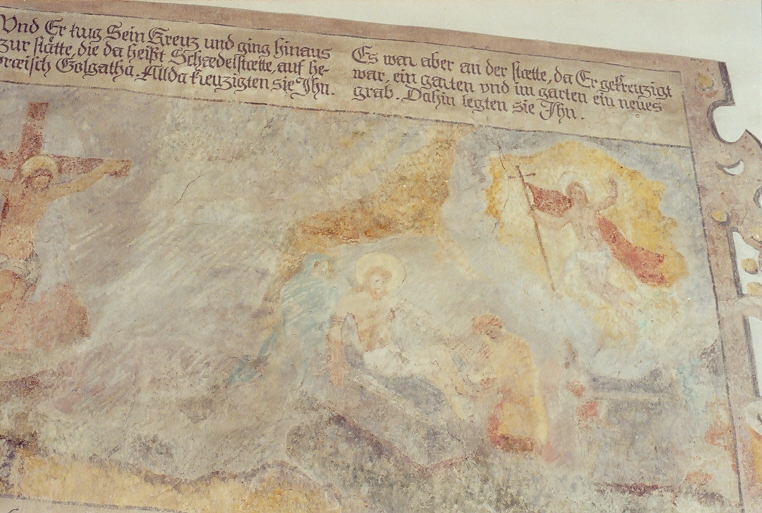 Vnd Er trug Sein Kreuz und ging hinaus
zur stätte, die da heißt Schædelstætte, auf he-
ræisch Golgatha. Allda kreuzigten sie Ihn.
Es war aber an der stætte, da Er gekreuzigt
war, ein garten vnd im garten ein neues
grab. Dahin legten sie Ihn.